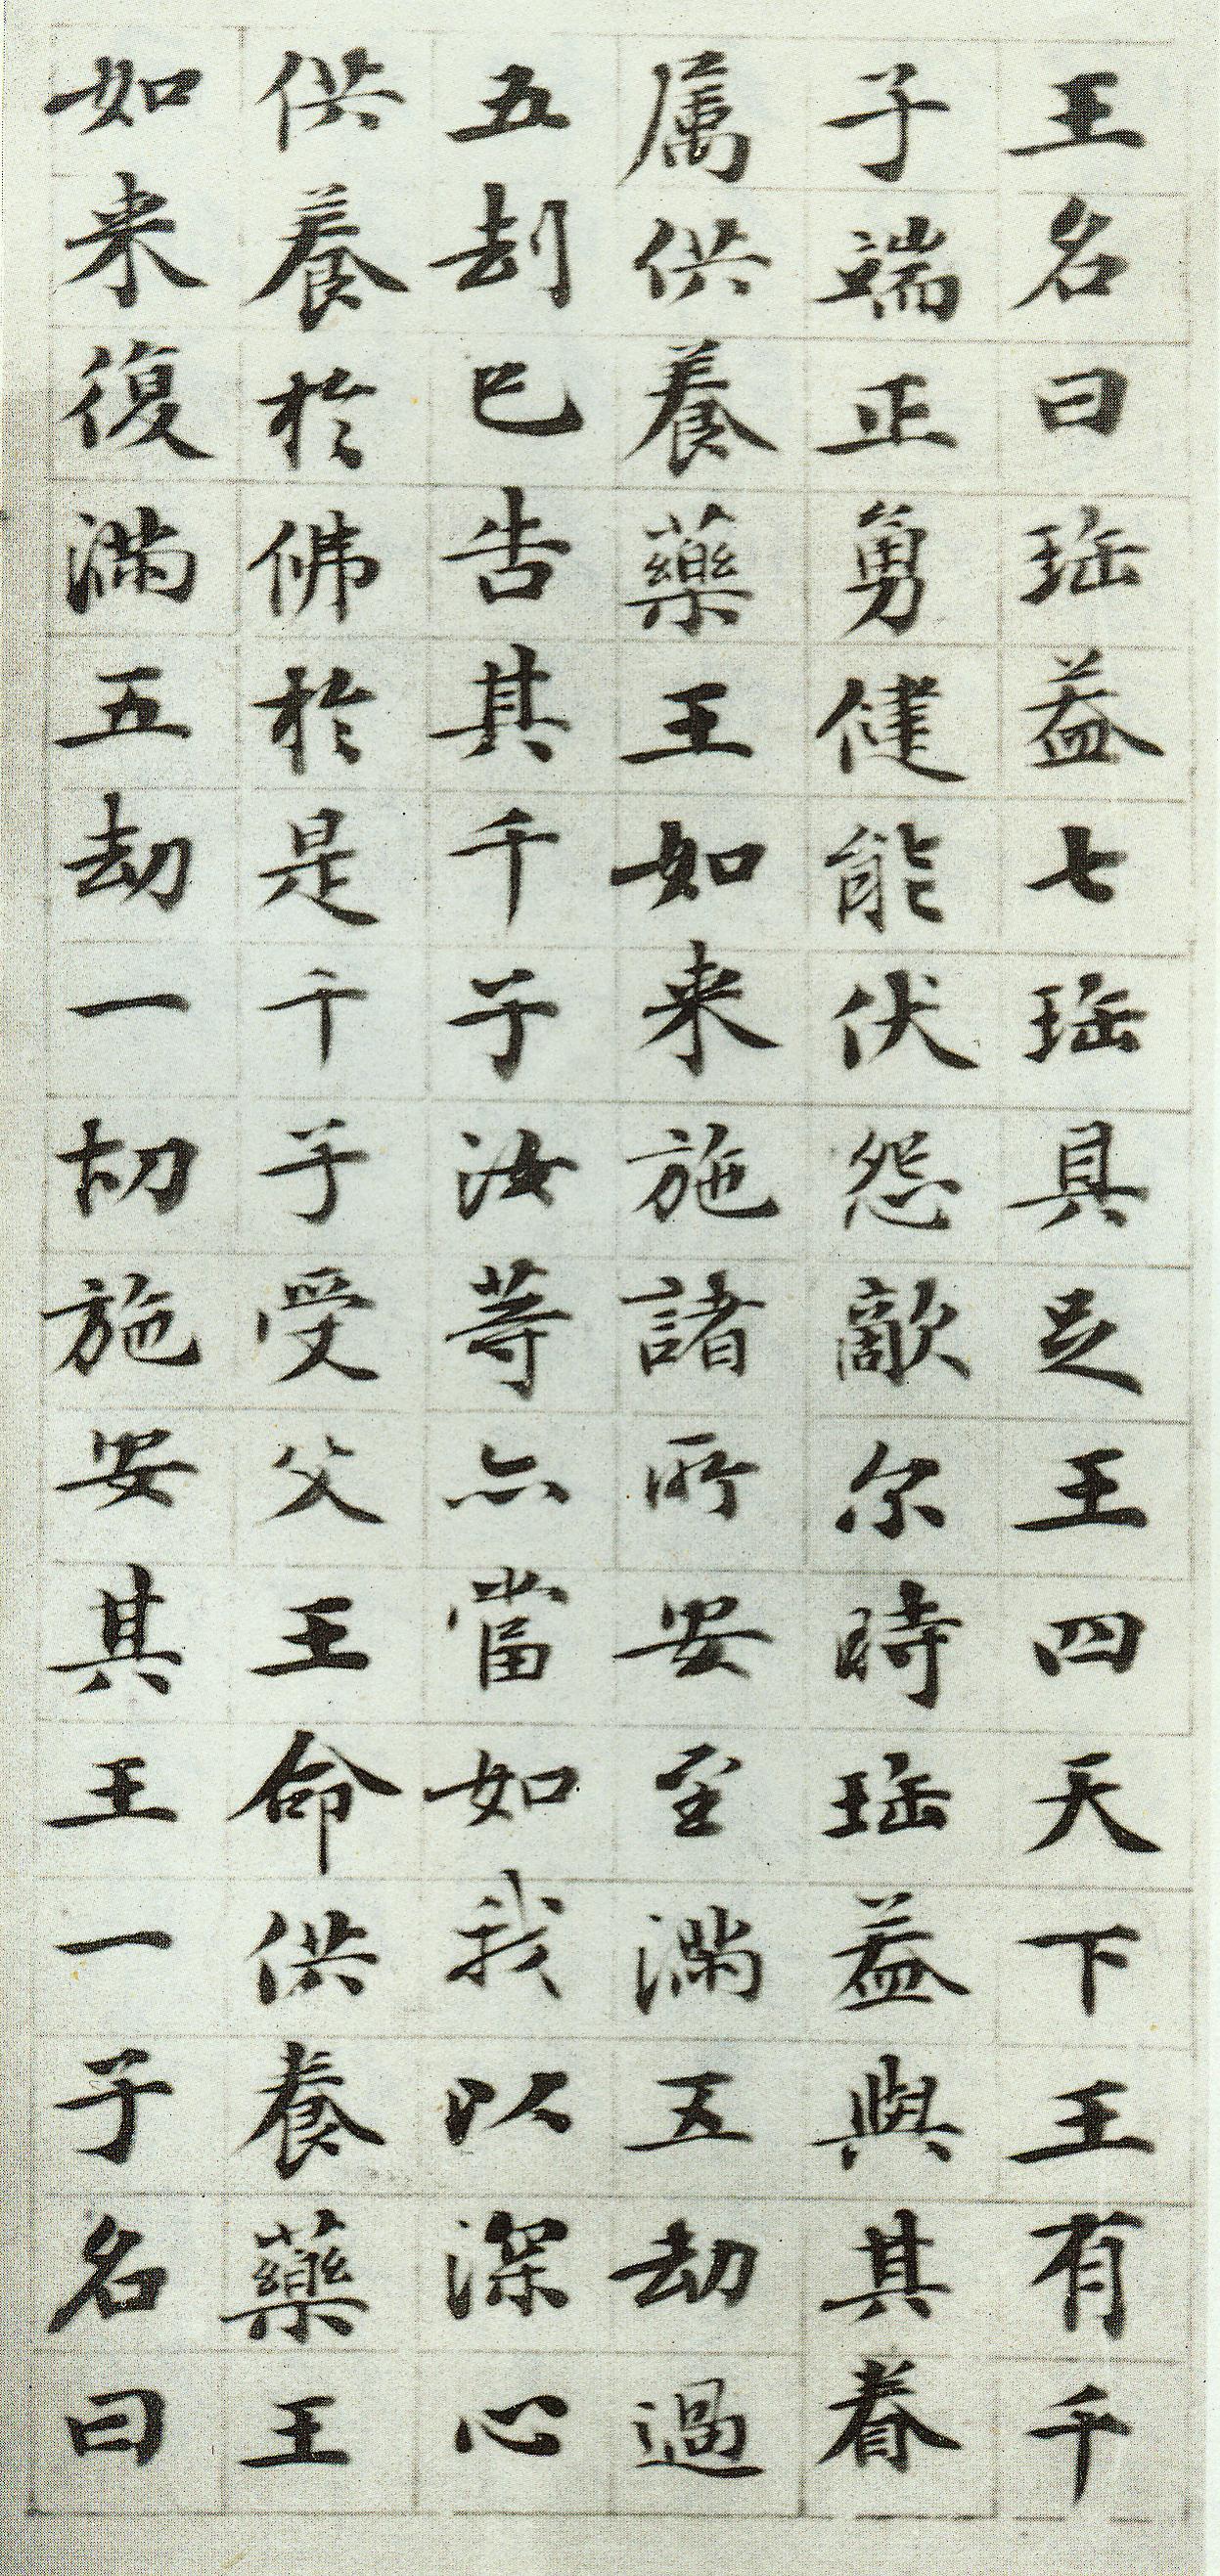 王名曰珤葢七珤具足王四天下王有千
子端正勇健能伏怨敵尔時珤葢與其眷
属供養藥王如来施諸所安至滿五劫過
五刦已告其千子汝等亦當如我以深心
供養於佛於是千子受父王命供養藥王
如来復滿五劫一切施安其王一子名曰